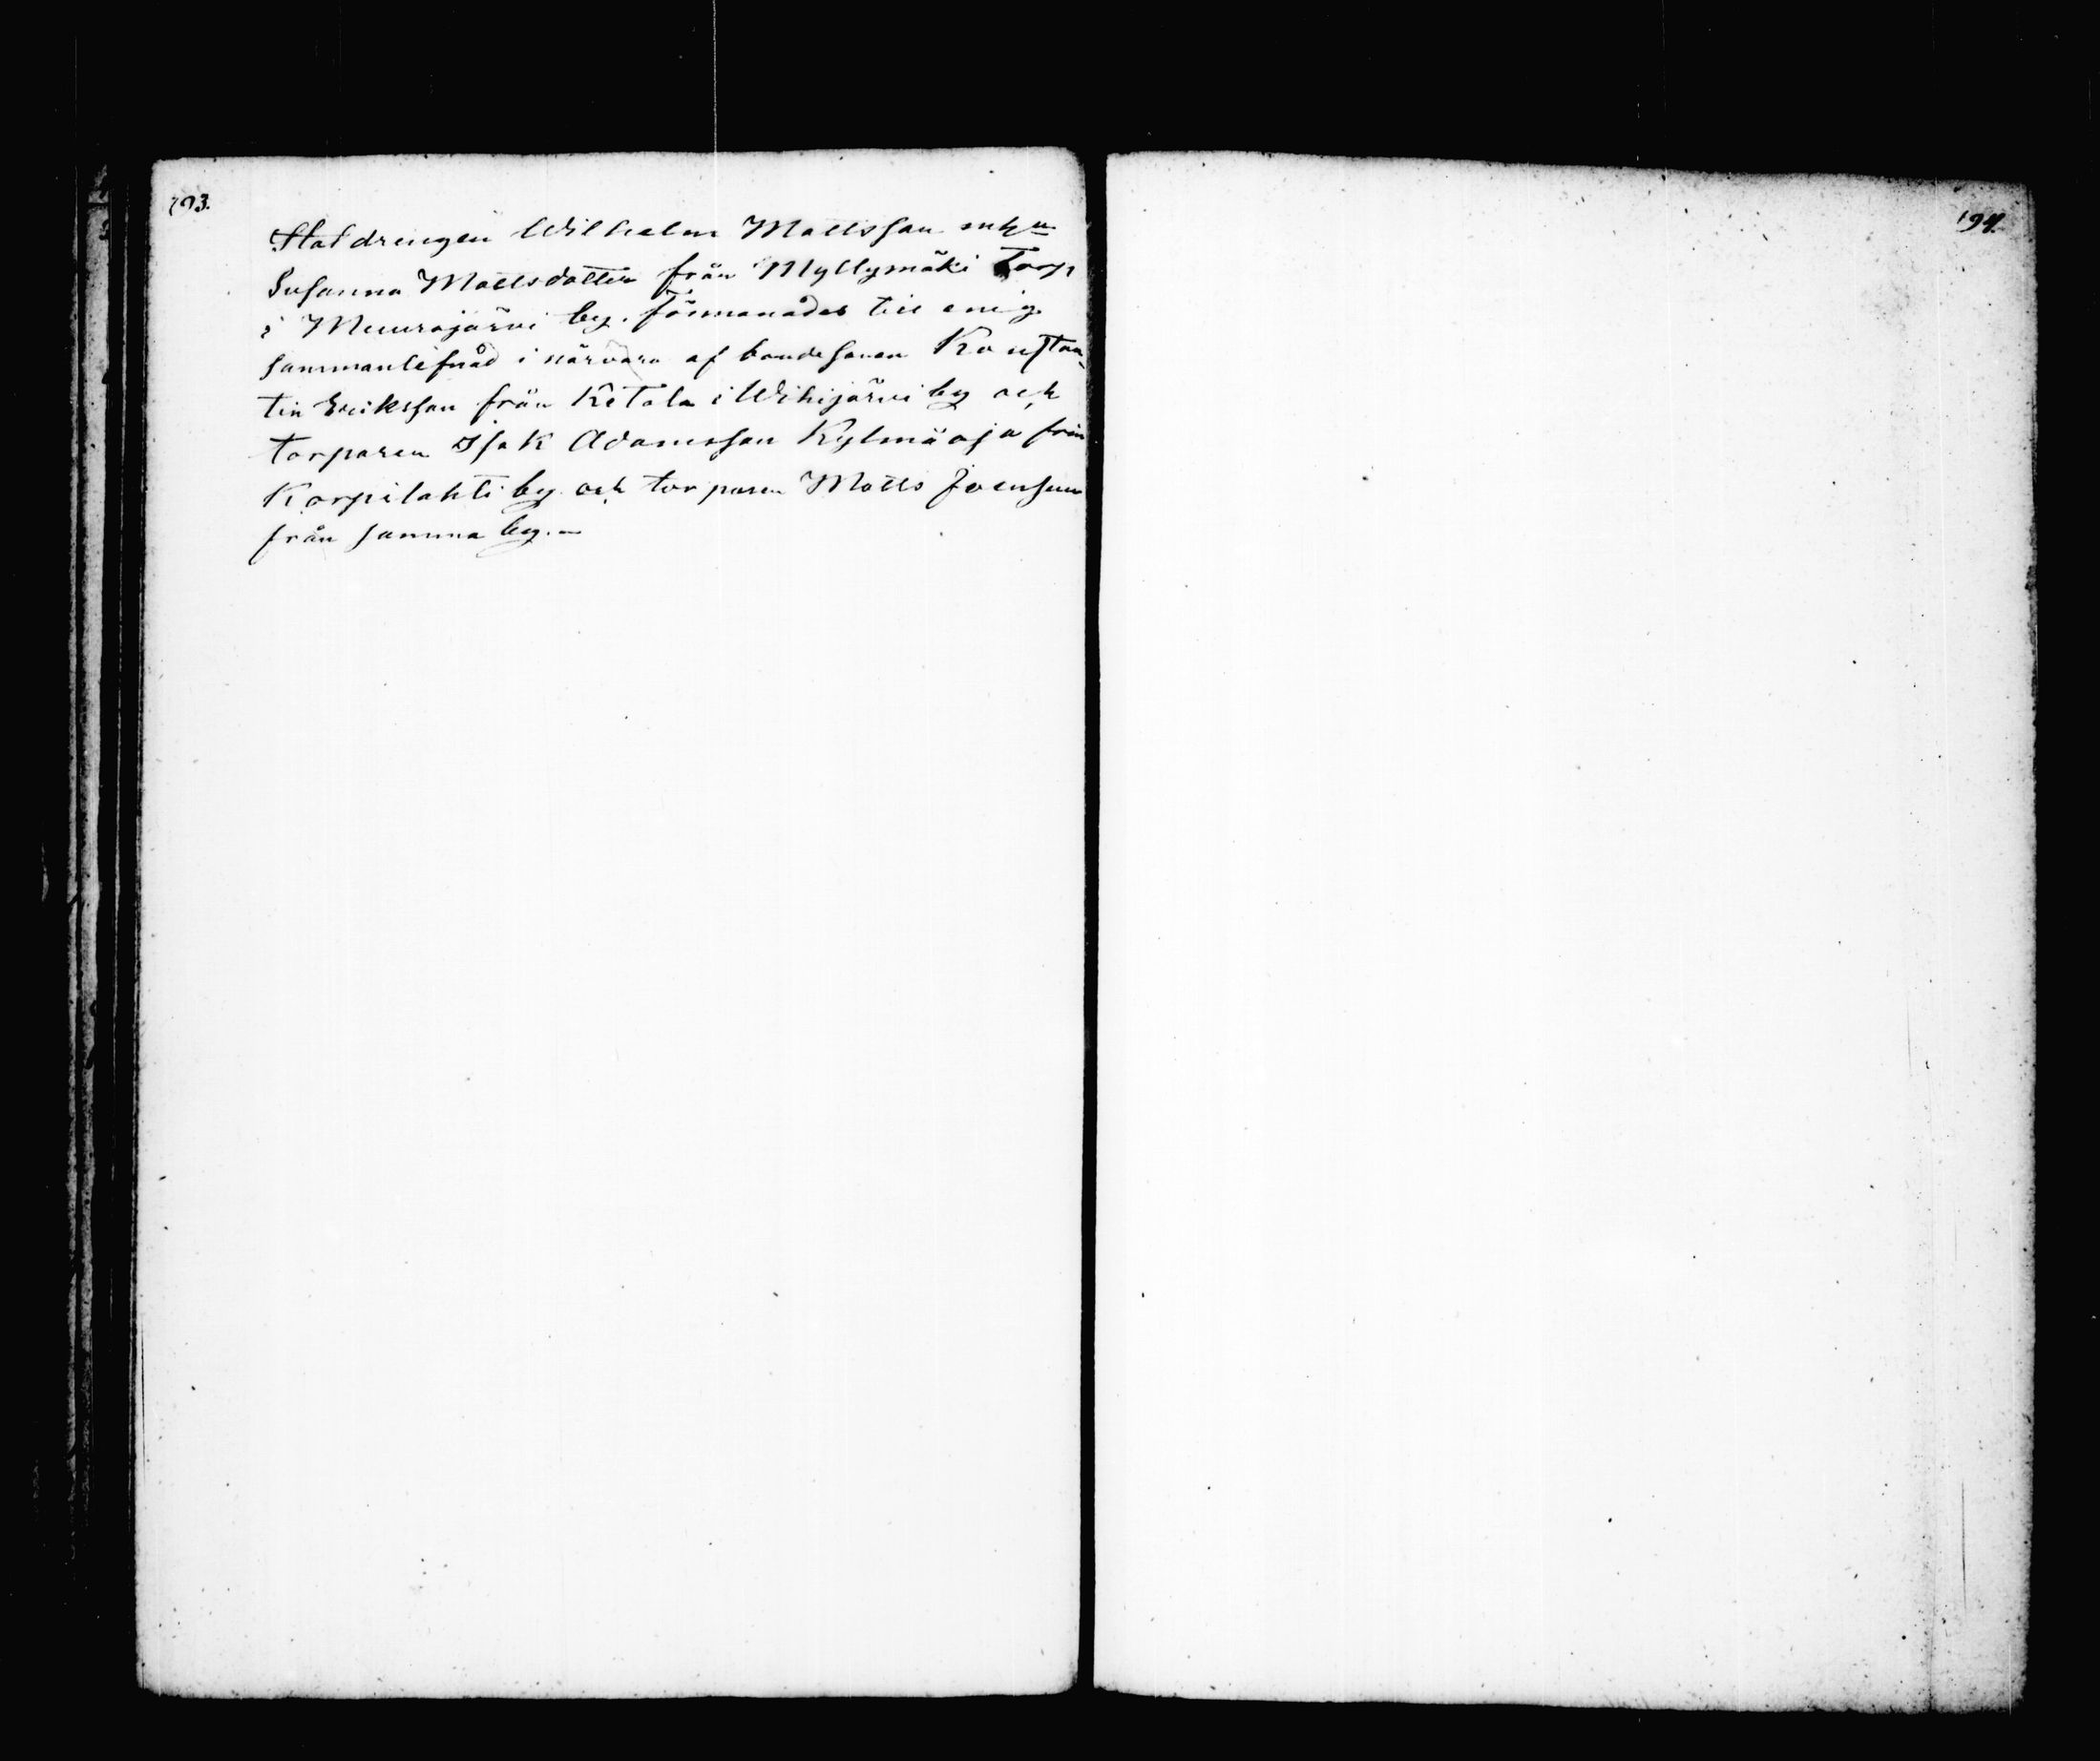 193.
Statdrengen Wilhelm Mattsson och
Susanna Mattsdotter från Myllymäki Torp
i Muurajärvi by. förmanades till enig
sammanlefnad i närvaro af bondesonen Konstan-
tin Eriksson från Ketola i Wihijärvi by och
torparen Isak Adamsson Kylmäoja från
Korpilahti by och torparen Matts Joensuu
från samma by. –
194.